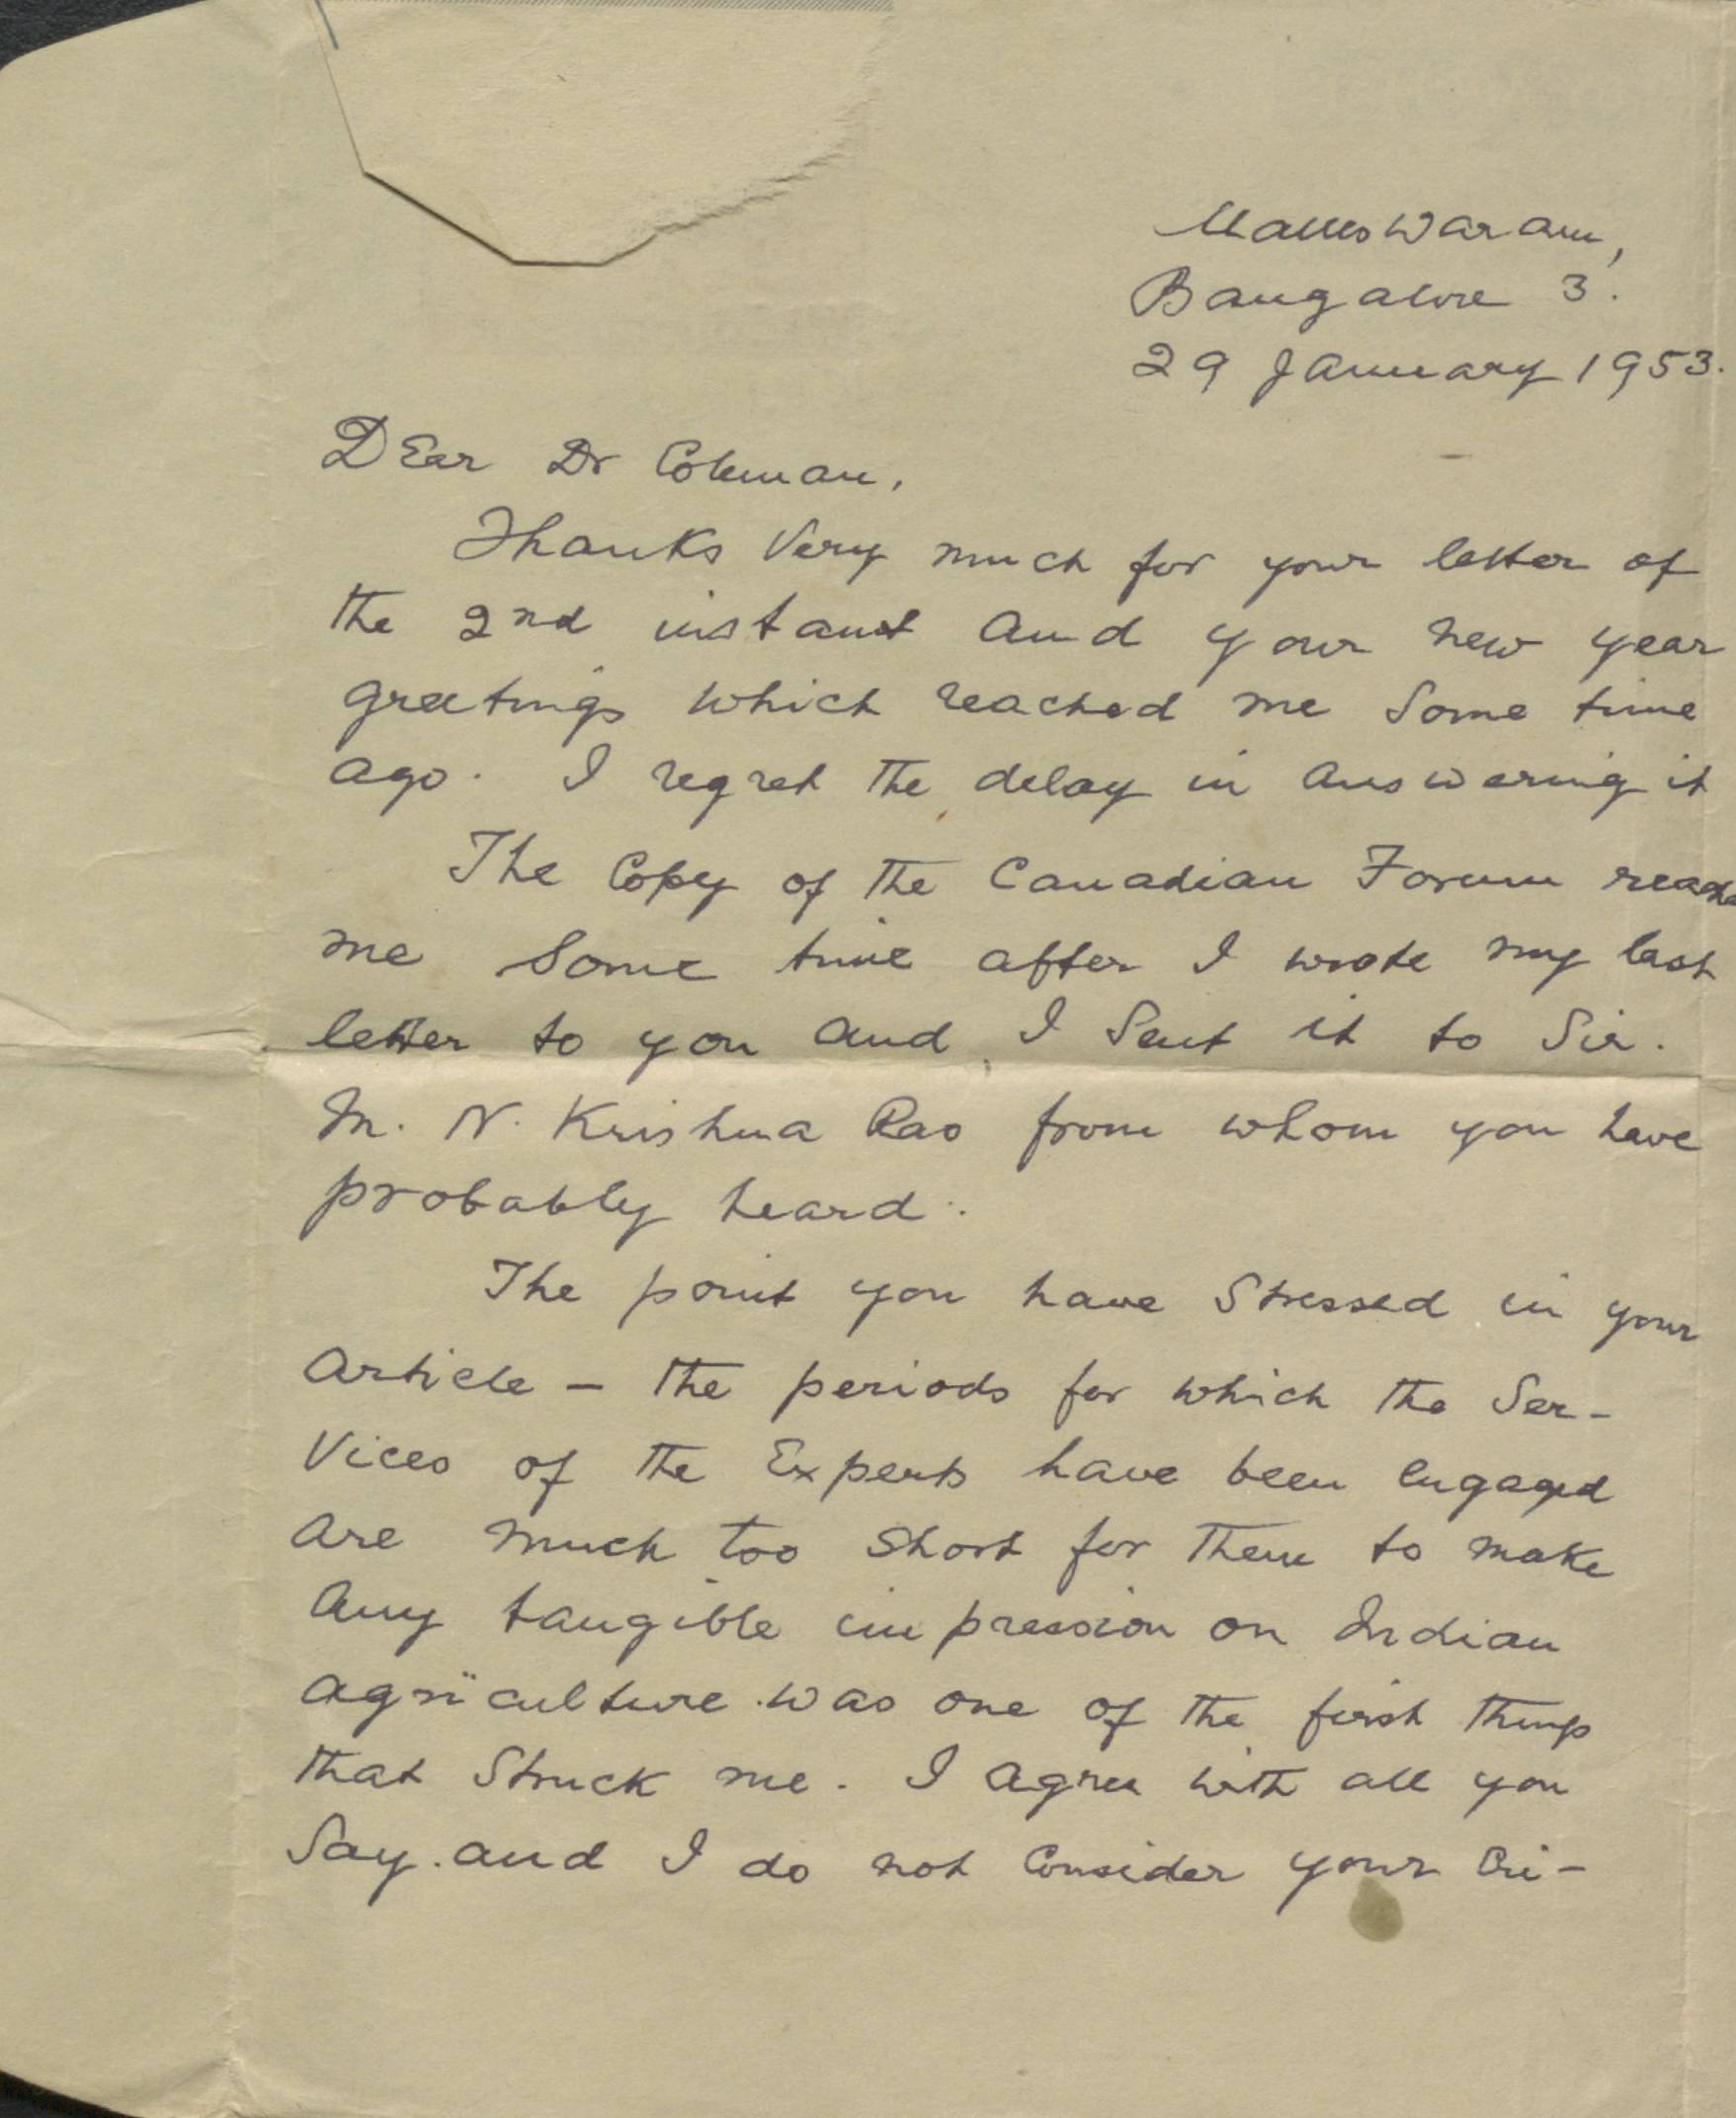 Malleswaram,
Bangalore 3.
29 January 1953.
Dear Dr Coleman,
Thanks very much for your letter of
the 2nd instant and your new year
greetings which reached me some time
ago. I regret the delay in answering it
The Copy of the Canadian Forum reache
me some time after I wrote my last
letter to you and I sent it to Sir.
M. N. Krishna Rao from whom you have
probably heard.
The point you have stressed in your
article - the periods for which the ser-
vices of the Experts have been engaged
are much too short for them to make
any tangible impression on Indian
agriculture was one of the first things
that struck me. I agree with all you
say. and I do not consider your cri-